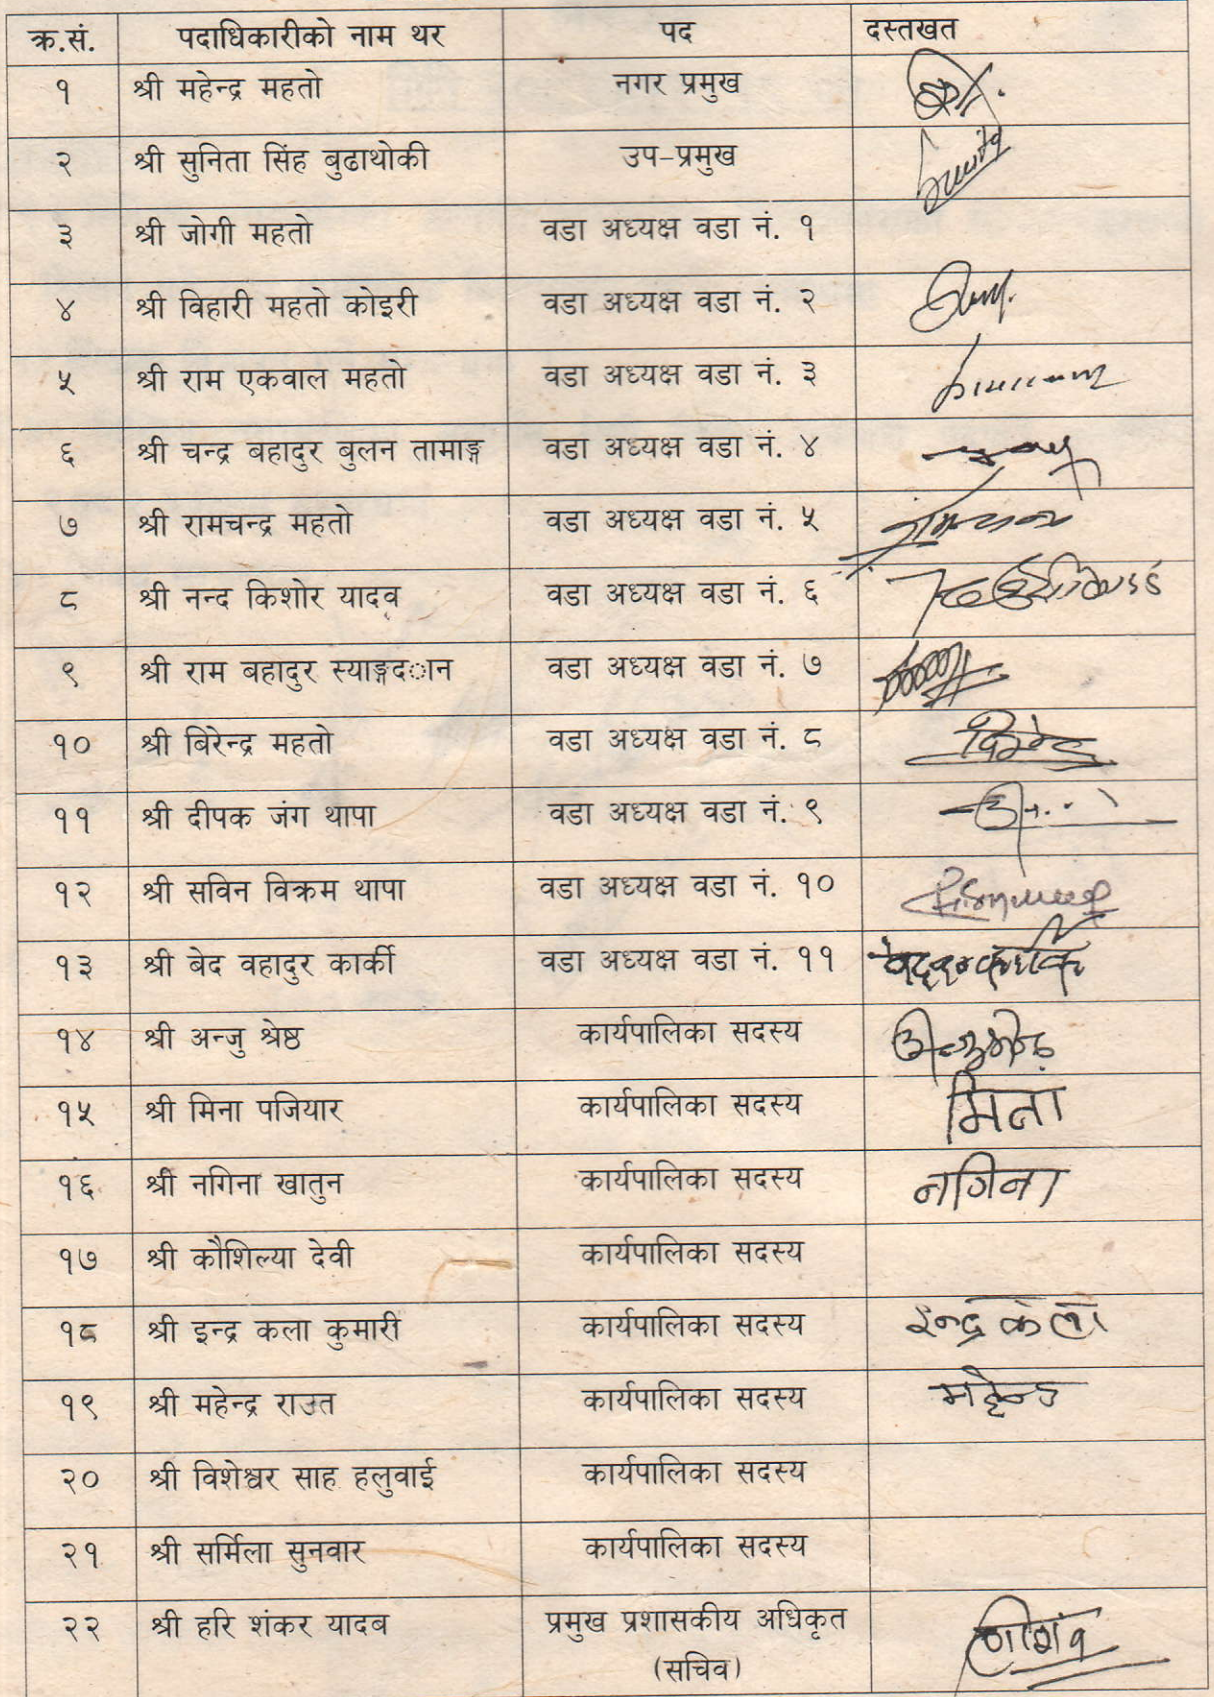 क्र.सं. पदाधिकारीको नाम थर पद दस्तखत
१ श्री महेन्द्र महतो नगर प्रमुख
२ श्री सुनिता सिंह बुढाथोकी उप-प्रमुख
३ श्री जोगी महतो वडा अध्यक्ष वडा नं. १
४ श्री विहारी महतो कोइरी वडा अध्यक्ष वडा नं. २
५ श्री राम एकवाल महतो वडा अध्यक्ष वडा नं. ३
६ श्री चन्द्र बहादुर बुलन तामाङ्ग वडा अध्यक्ष वडा नं. ४
७ श्री रामचन्द्र महतो वडा अध्यक्ष वडा नं. ५
८ श्री नन्द किशोर यादव वडा अध्यक्ष वडा नं. ६
९ श्री राम बहादुर स्याङ्गद◌ान वडा अध्यक्ष वडा नं. ७
१० श्री बिरेन्द्र महतो वडा अध्यक्ष वडा नं. ८
११ श्री दीपक जंग थापा वडा अध्यक्ष वडा नं. ९
१२ श्री सविन विक्रम थापा वडा अध्यक्ष वडा नं. १०
१३ श्री बेद वहादुर कार्की वडा अध्यक्ष वडा नं. ११
१४ श्री अन्जु श्रेष्ठ कार्यपालिका सदस्य
१५ श्री मिना पजियार कार्यपालिका सदस्य मिना
१६ श्री नगिना खातुन कार्यपालिका सदस्य नगिना
१७ श्री कौशिल्या देवी कार्यपालिका सदस्य
१८ श्री इन्द्र कला कुमारी कार्यपालिका सदस्य इन्द्र कला
१९ श्री महेन्द्र राउत कार्यपालिका सदस्य महेन्द्र
२० श्री विशेश्वर साह हलुवाई कार्यपालिका सदस्य
२१ श्री सर्मिला सुनवार कार्यपालिका सदस्य
२२ श्री हरि शंकर यादब प्रमुख प्रशासकीय अधिकृत
(सचिव)